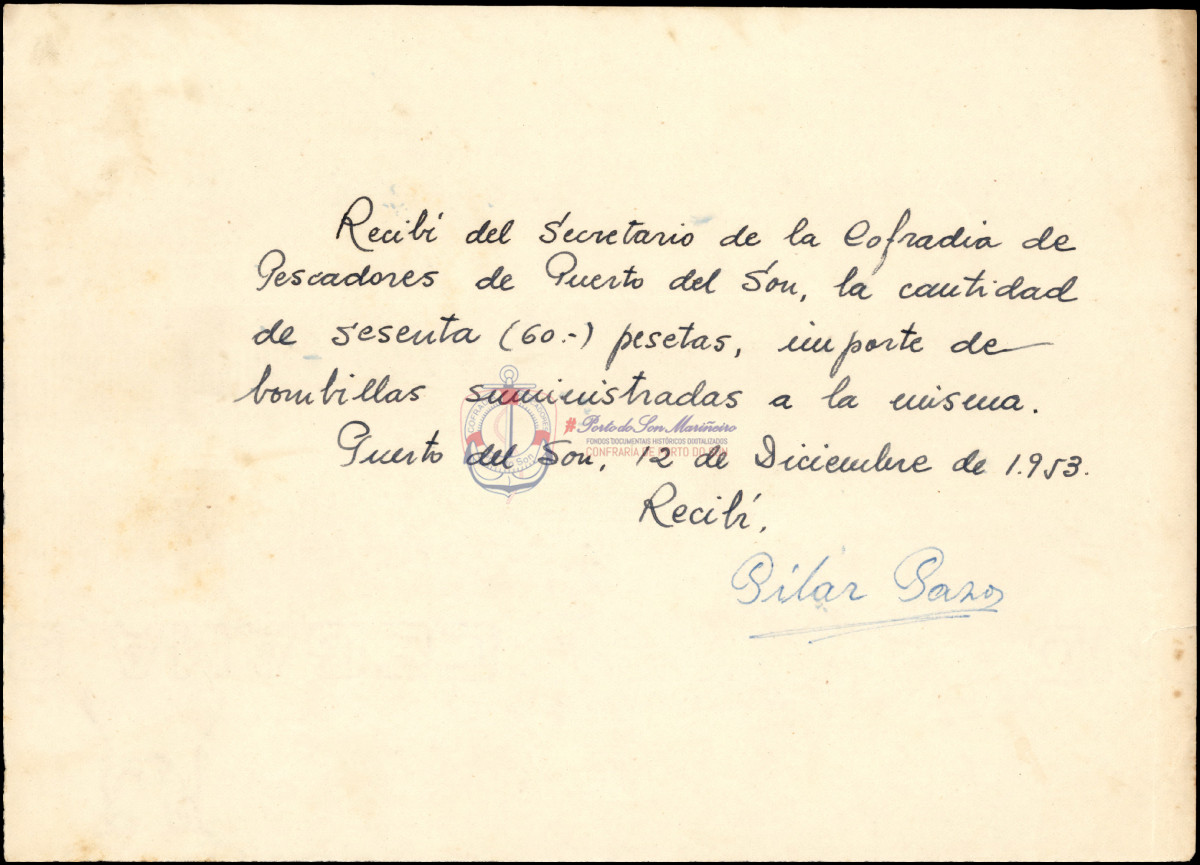 Recibí del Secretario de la Cofradia de
Pescadores de Puerto del Son, la cantidad
de sesenta (60.-) pesetas, importe de
bombillas suministradas a la misma.
#PortodoSon Mariñeiro
FONDOS DOCUMENTAIS HISTÓRICOS DIXITALIZADOS
CONFRARÍA DE PORTO DO SON
Puerto del Son, 12 de Diciembre de 1.953.
Recibí,
Pilar Pazos